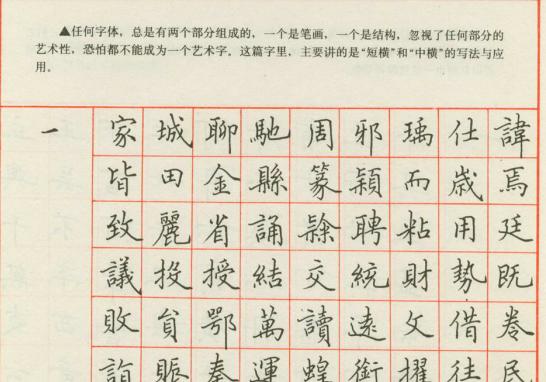 ▲任何字体，总是有两个部分组成的，一个是笔画，一个是结构，忽视了任何部分的
艺术性，恐怕都不能成为一个艺术字。这篇字里，主要讲的是“短横”和“中横”的写法与应
用。
一 家 城 聊 馳 周 邪 瑀 仕 諱
皆 田 金 縣 篆 穎 而 歲 焉
致 麗 省 誦 隸 聘 粘 用 廷
議 投 授 結 交 統 財 勢 既
敗 負 鄂 萬 讀 遠 文 借 卷
詣 賑 奏 運 蝗 銜 擢 往 民